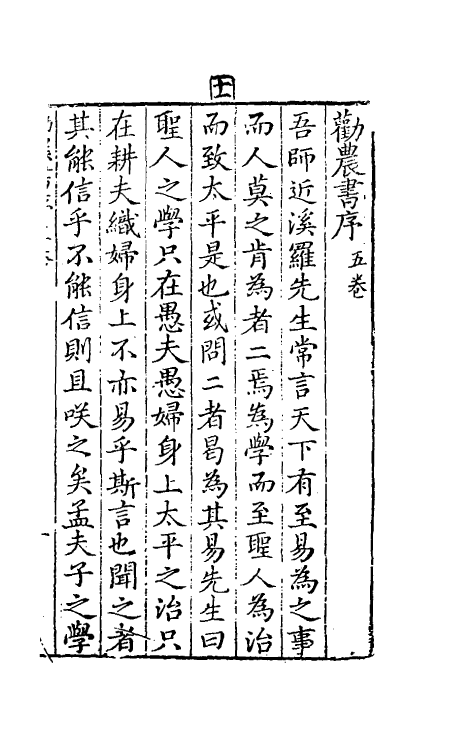 十一
勸農書序 五卷
吾師近溪羅先生常言天下有至易為之事
而人莫之肯為者二焉為學而至聖人為治
而致太平是也或問二者曷為其易先生曰
聖人之學只在愚夫愚婦身上太平之治只
在耕夫織婦身上不亦易乎斯言也聞之者
其能信乎不能信則且咲之矣孟夫子之學